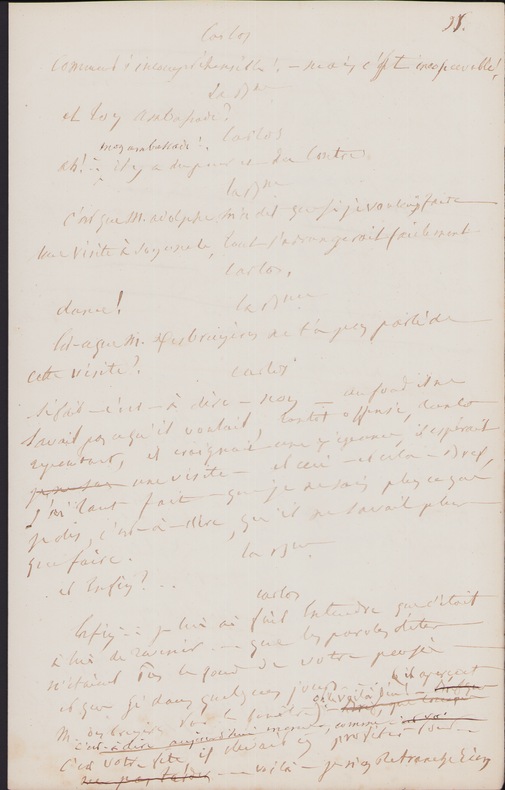 28.
Carlos
Comment! incompréhensible! — mais c'est inconcevable!
la Bne
et ton ambassade?
Carlos
mon ambassade!
ah! — il y a du pour et du contre.
la Bne
C'est que M. adolphe m'a dit que si je voulais faire
une visite à son oncle, tout s'arrangerait facilement
Carlos.
dame!
la Bne
Est-ce que M. Desbruyères ne t'a pas parlé de
cette visite?
Carlos
Si fait — c'est-à-dire — non — au fond il ne
savait pas ce qu'il voulait, tantôt offensé, tantôt
repentant, il craignait une réponse, il espérait
une visite — et ceci — et cela — Bref,
il m'a tant fait — que je ne sais plus ce que
je dis, c'est-à-dire, qu'il ne savait plus
que faire.
la Bne
et Enfin? ..
Carlos
Enfin — je lui ai fait entendre que c'était
à lui de revenir — que les paroles
n'étaient pas le fond de votre pensée —
et que si dans quelques jours —
M. Desbruyères sur la
c'est-à-dire aujourd'hui même, comme
C'est votre fête, il devait en profiter pour —
voilà — je n'en retranche rien